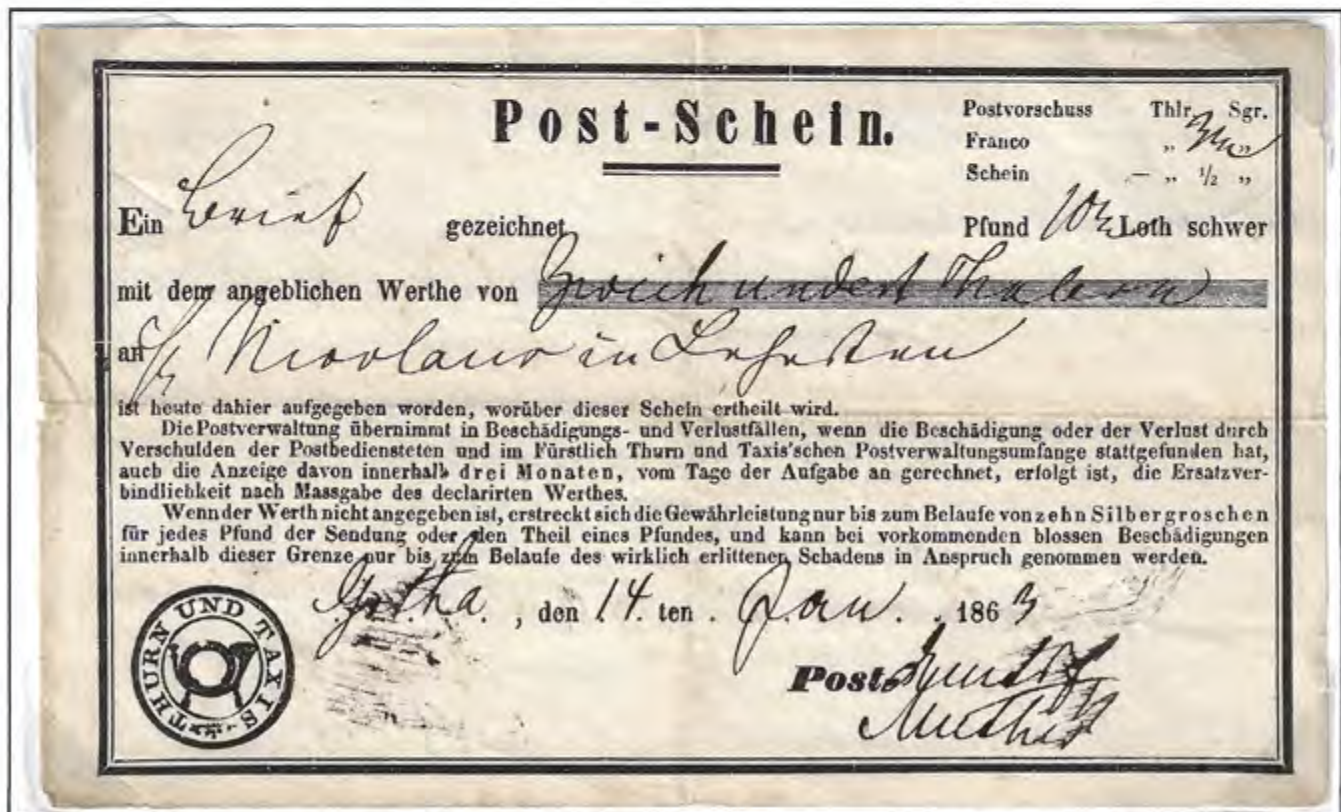 Post-Schein.
Postvorschuss Thlr. Sgr.
Franco „ „
Schein — „ 1/2 „
Ein Brief gezeichnet Pfund Loth schwer
mit dem angeblichen Werthe von Zweihundert Thalern
an Nicolaus in Lehesten
ist heute dahier aufgegeben worden, worüber dieser Schein ertheilt wird.
Die Postverwaltung übernimmt in Beschädigungs- und Verlustfällen, wenn die Beschädigung oder der Verlust durch
Verschulden der Postbediensteten und im Fürstlich Thurn und Taxis'schen Postverwaltungsumfange stattgefunden hat,
auch die Anzeige davon innerhalb drei Monaten, vom Tage der Aufgabe an gerechnet, erfolgt ist, die Ersatzver-
bindlichkeit nach Massgabe des declarirten Werthes.
Wenn der Werth nicht angegeben ist, erstreckt sich die Gewährleistung nur bis zum Belaufe von zehn Silbergroschen
für jedes Pfund der Sendung oder den Theil eines Pfundes, und kann bei vorkommenden blossen Beschädigungen
innerhalb dieser Grenze nur bis zum Belaufe des wirklich erlittenen Schadens in Anspruch genommen werden.
Gotha, den 14. ten Jan. 1863
THURN UND TAXIS
Post